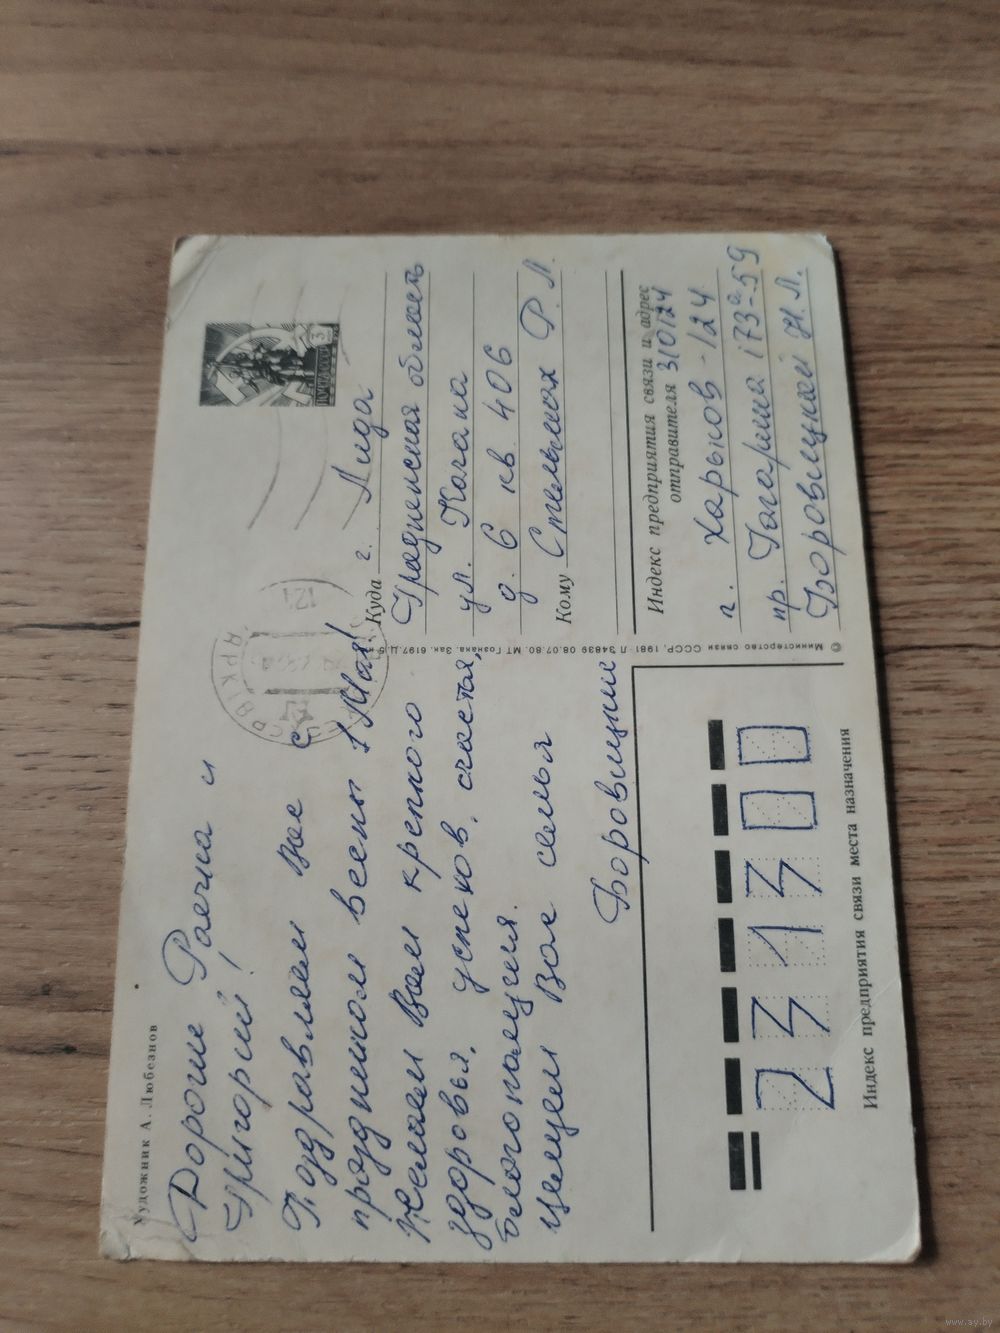 Художник А. Любезнов
Дорогие Раечка и
Григорий!
Поздравляем Вас с
праздником весны 1 Мая!
Желаем Вам крепкого
здоровья, успехов, счастья,
благополучия.
Целуем Вас семья
Боровицкие
ПОЧТА СССР
Куда г. Лида
Гродненская область
ул. Качана
д. 6 кв 406
Кому Стельмах Р. Л.
Индекс предприятия связи и адрес
отправителя 310124
г. Харьков - 124
пр. Гагарина 173а-59
Боровицкой Н. Л.
© Министерство связи СССР, 1981 Л 34839 08.07.80. МТ Гознака. Зак. 6197. Ц. 5 к.
231300
Индекс предприятия связи места назначения
www.ay.by